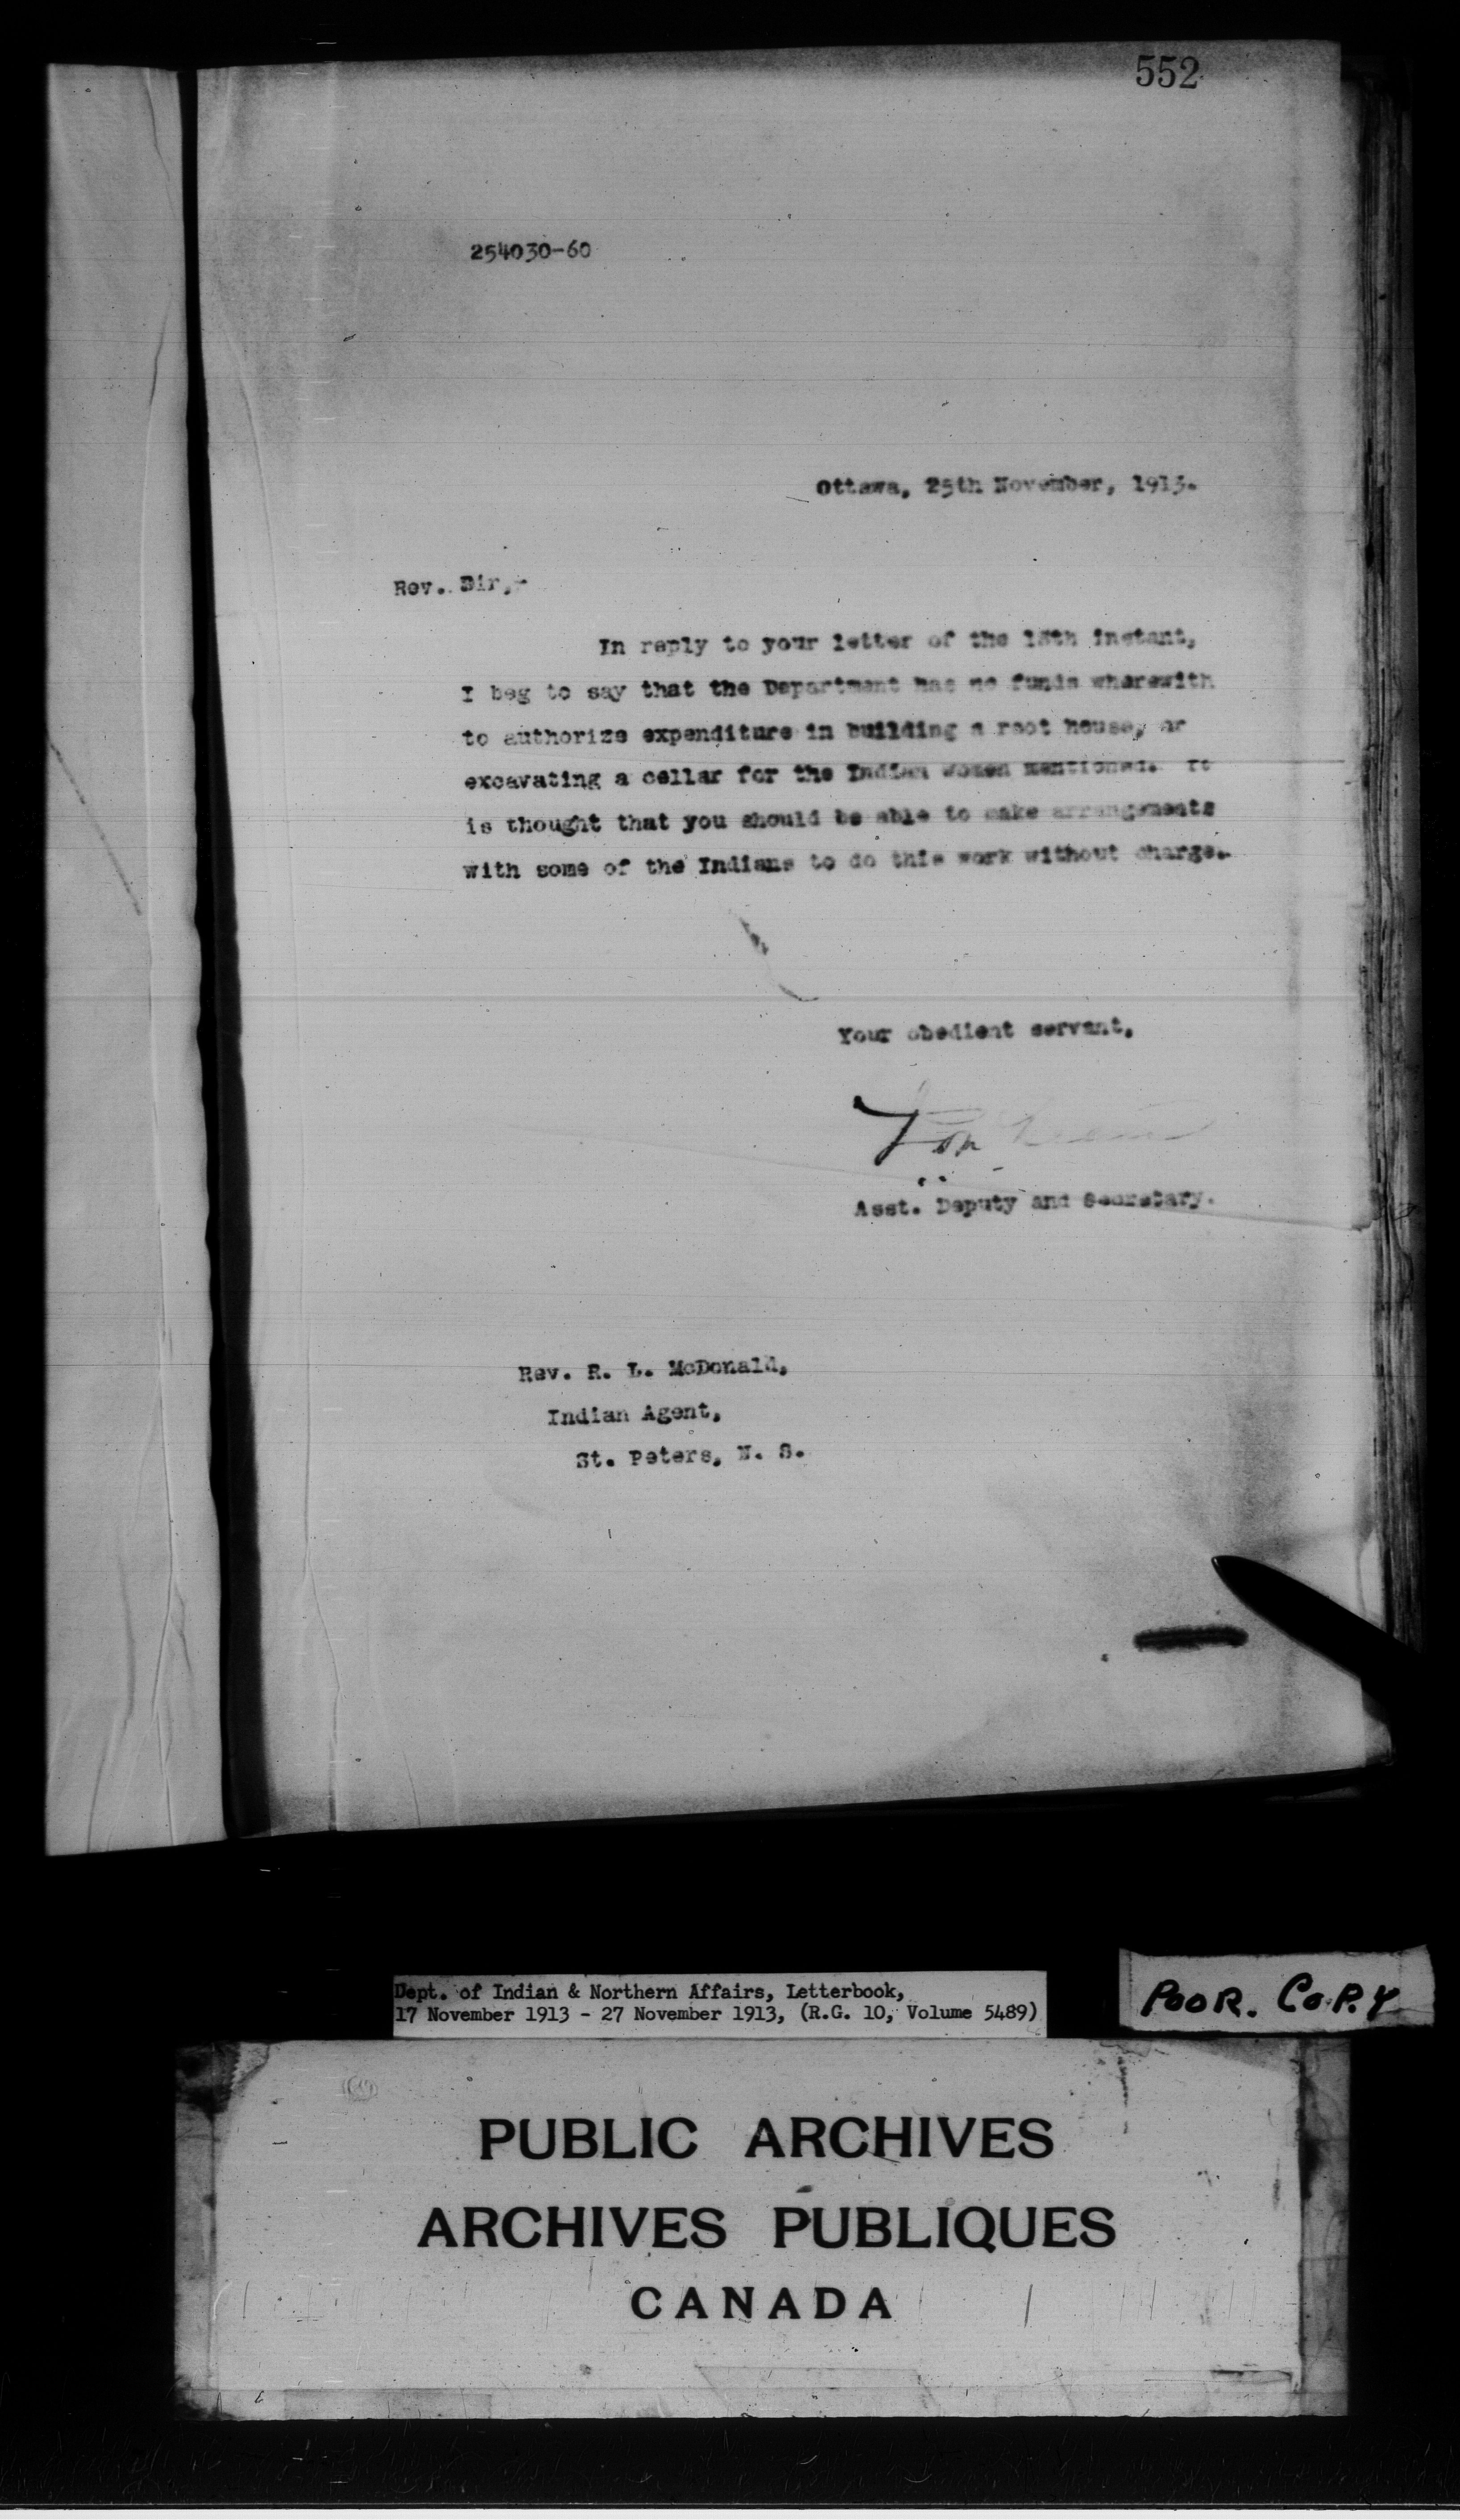 552
254030-60
Ottawa, 25th November, 1913.
Rev. Sir,-
In reply to your letter of the 18th instant,
I beg to say that the Department has no funds wherewith
to authorize expenditure in building a root house, or
excavating a cellar for the Indian women mentioned. It
is thought that you should be able to make arrangements
with some of the Indians to do this work without charge.
Your obedient servant,
Asst. Deputy and Secretary.
Rev. R. L. McDonald,
Indian Agent,
St. Peters, N. S.
Dept. of Indian & Northern Affairs, Letterbook,
17 November 1913 - 27 November 1913, (R.G. 10, Volume 5489)
POOR. COPY
PUBLIC ARCHIVES
ARCHIVES PUBLIQUES
CANADA